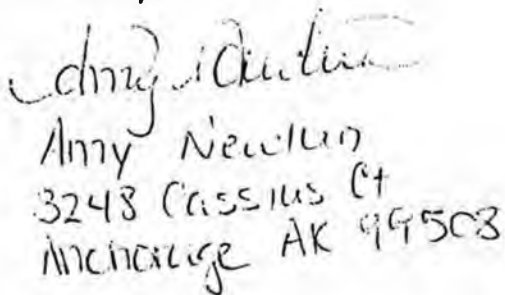 Amy Newlun
Amy Newlun
3248 Cassius Ct
Anchorage AK 99508